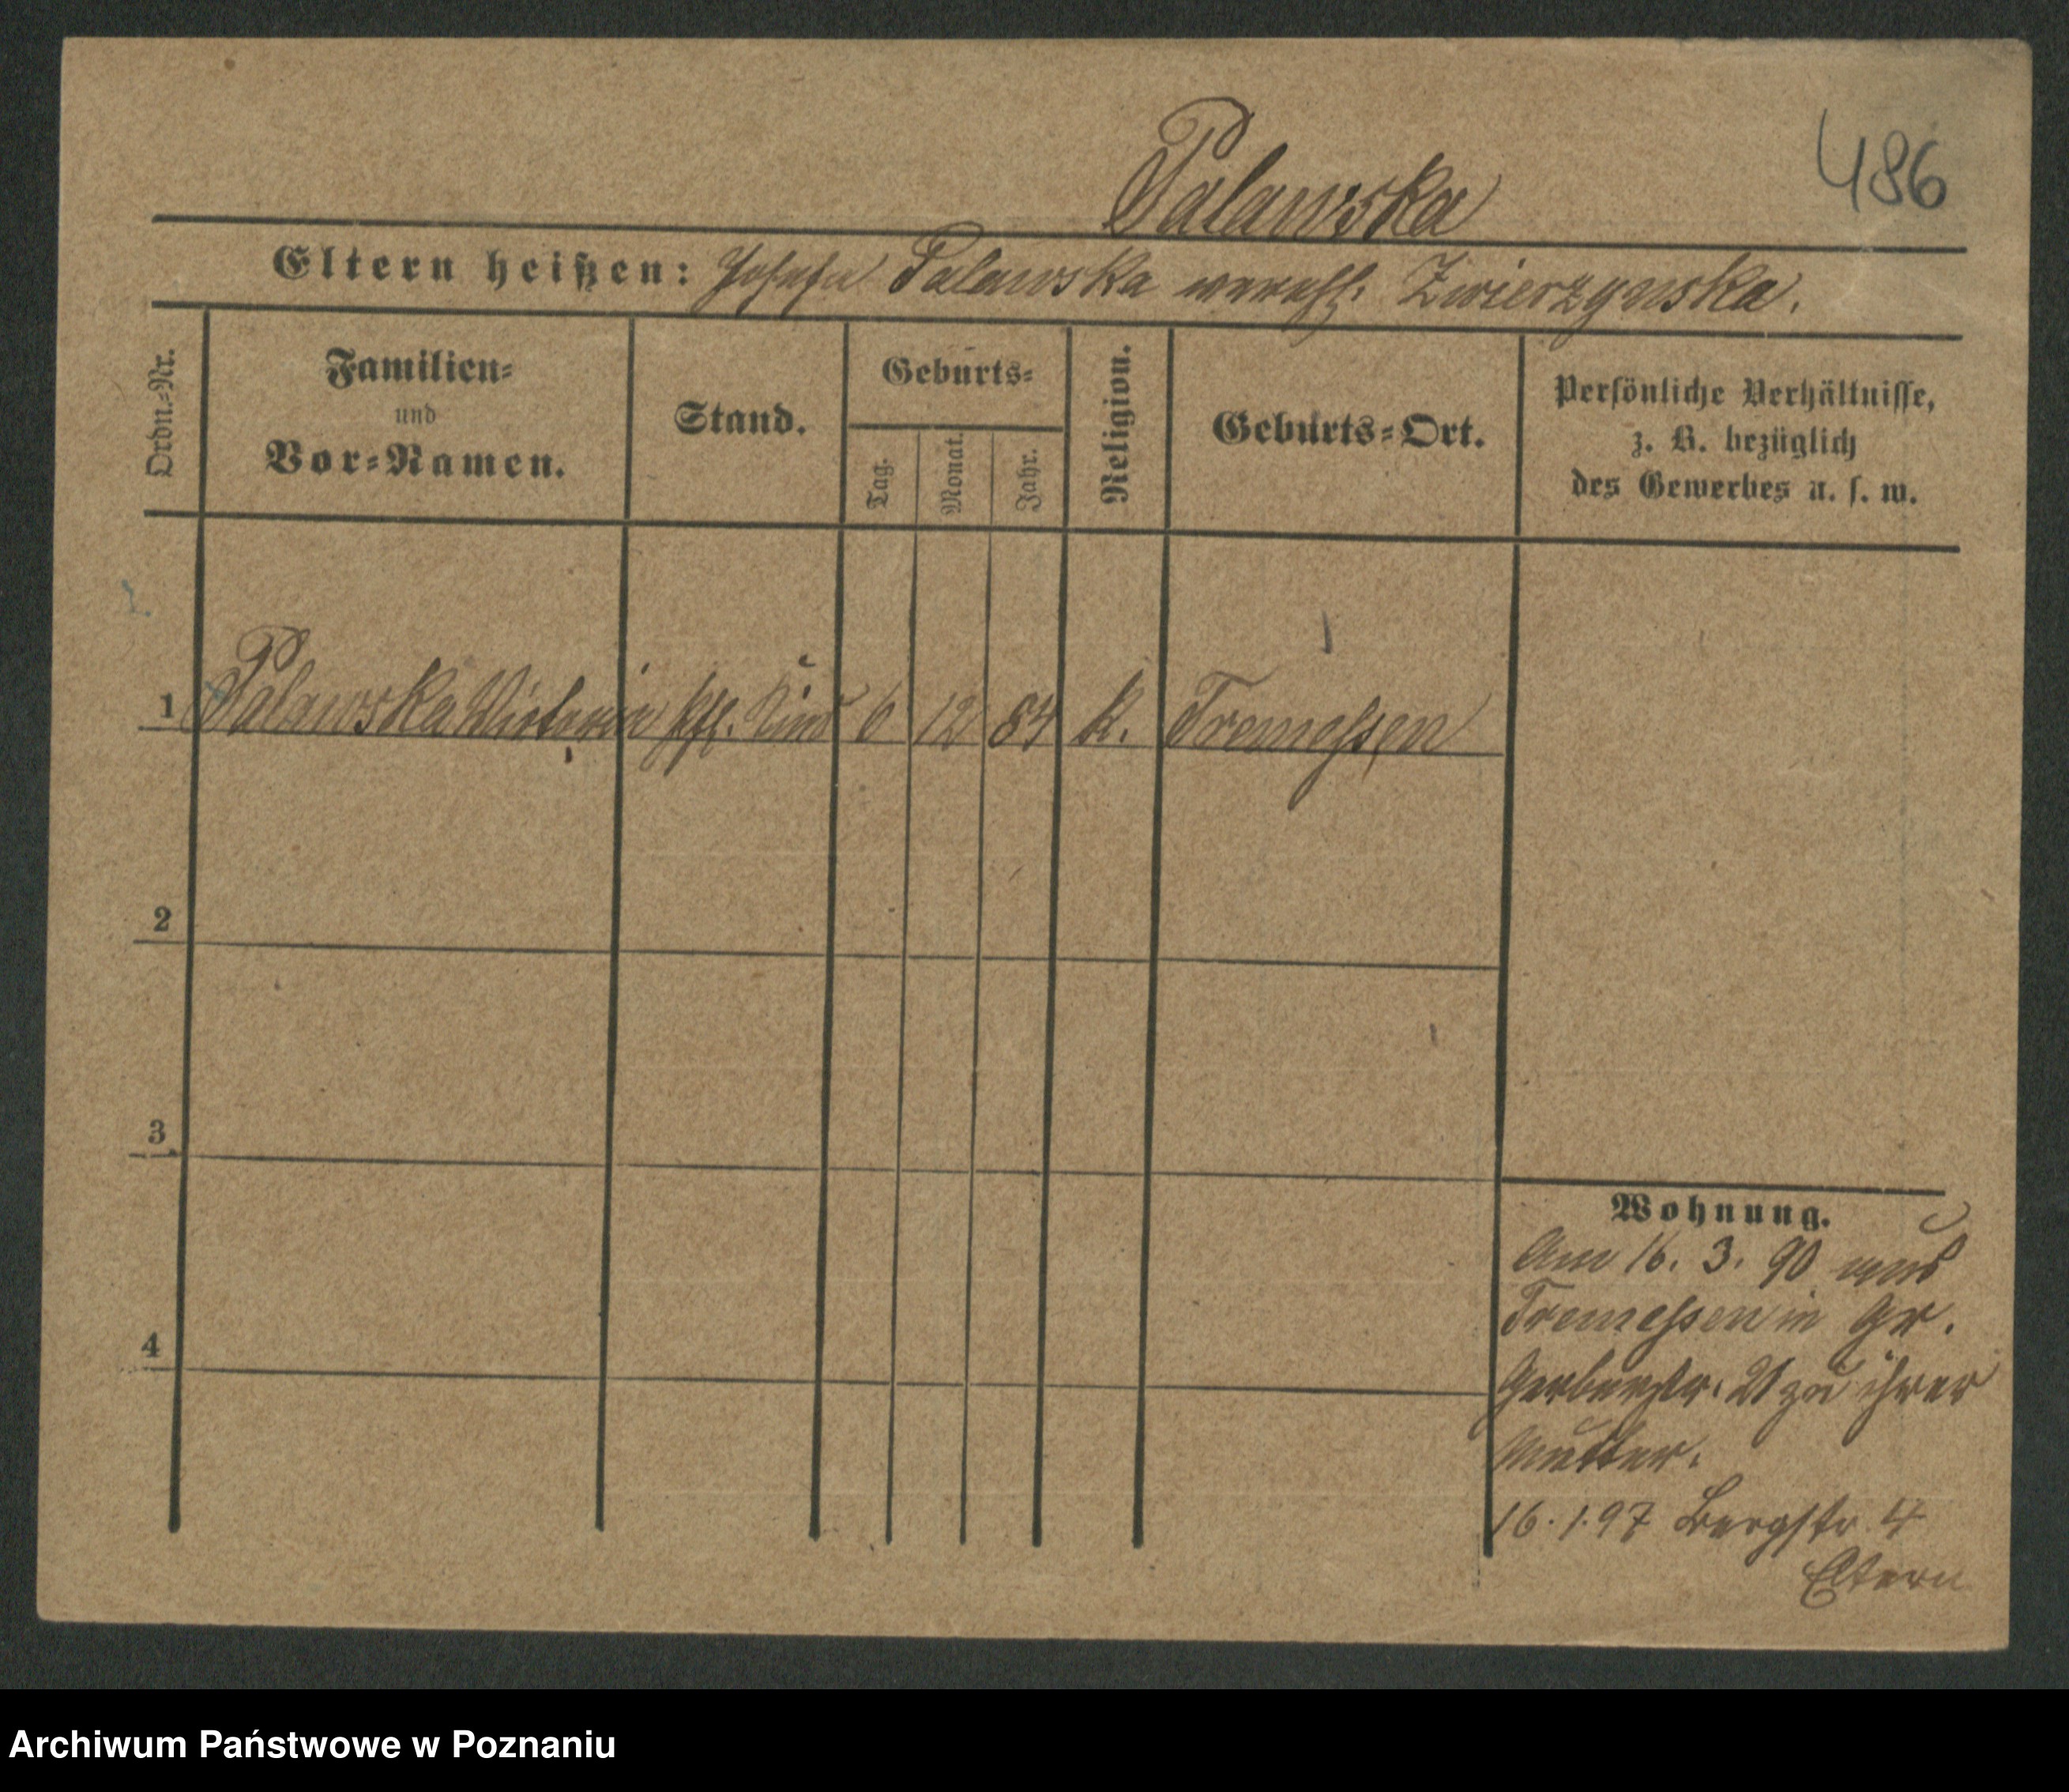 486
Palawska
Eltern heißen: Josefa Palawska verehl. Zwierzynska.
Ordn.-Nr.
Familien-
und
Vor-Namen.
Stand.
Geburts-
Tag.
Monat.
Jahr.
Religion.
Geburts-Ort.
Persönliche Verhältnisse,
z. B. bezüglich
des Gewerbes u. s. w.
1 Palawska Victoria Kind 6 12 84 k. Tremessen
2
3
4
Wohnung.
Am 16. 3. 90 aus
Tremessen in Gr.
Gerberstr. 21 zu ihrer
Mutter.
16.1.97 Bergstr. 4
Eltern
Archiwum Państwowe w Poznaniu